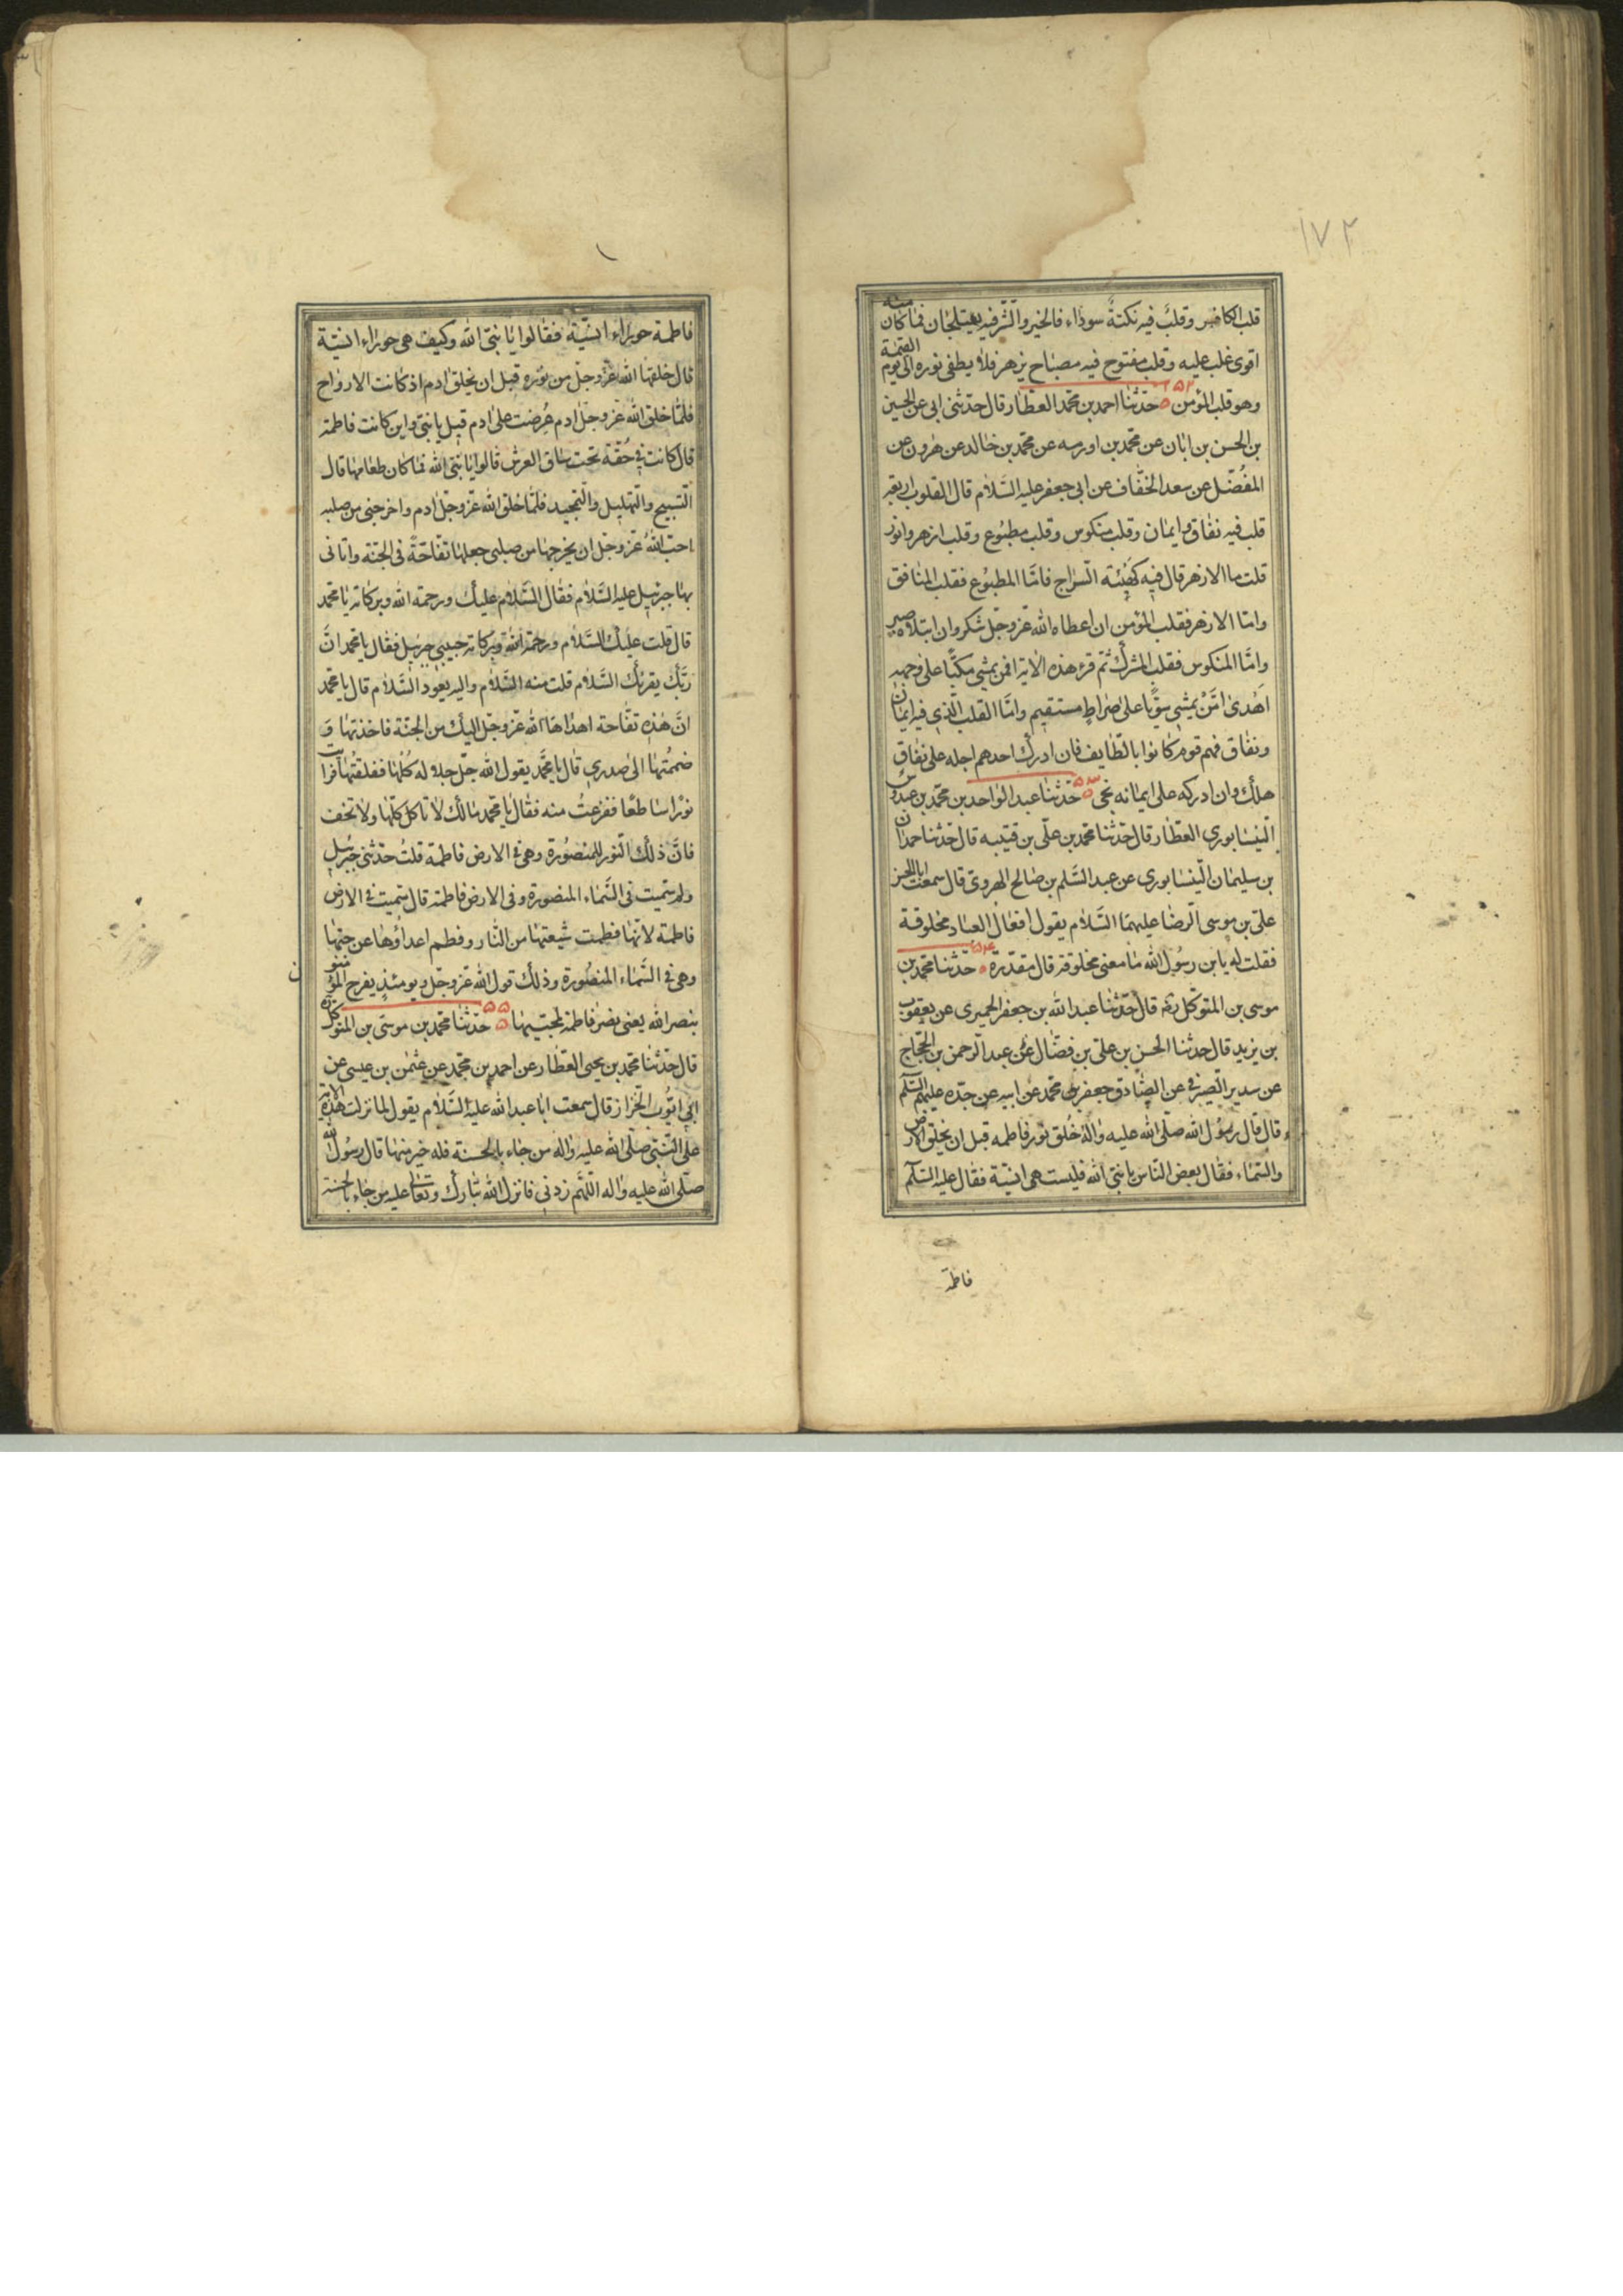 ١٧٢
قلب الكافر وقلب فيه نكتة سوداء فالخير والشر فيه يعتلجان فما كان منه
اقوى غلب عليه وقلب مفتوح فيه مصباح يزهر فلا يطفى نوره الى يوم القيمة
وهو قلب المؤمن ٥٢ حدثنا احمد بن محمد العطار قال حدثنى ابى عن الحسين
بن الحسن بن ابان عن محمد بن اورمه عن محمد بن خالد عن هرون عن
المفضل عن سعد الخفاف عن ابى جعفر عليه السلام قال القلوب اربعة
قلب فيه نفاق وايمان وقلب منكوس وقلب مطبوع وقلب ازهر وانور
قلت ما الازهر قال فيه كهيئة السراج فاما المطبوع فقلب المنافق
واما الازهر فقلب المؤمن ان اعطاه الله عز وجل شكر وان ابتلاه صبر
واما المنكوس فقلب المشرك ثم قرء هذه الاية افمن يمشى مكبا على وجهه
اهدى امن يمشى سويا على صراط مستقيم واما القلب الذى فيه ايمان
ونفاق فهم قوم كانوا بالطايف فان ادرك احدهم اجله على نفاق
هلك وان ادركه على ايمانه نجى ٥٣ حدثنا عبد الواحد بن محمد بن عبدوس
النيسابورى العطار قال حدثنا محمد بن على بن قتيبه قال حدثنا حمدان
بن سليمان النيسابورى عن عبد السلم بن صالح الهروى قال سمعت ابا الحسن
على بن موسى الرضا عليهما السلام يقول افعال العباد مخلوقة
فقلت له يابن رسول الله ما معنى مخلوقة قال مقدرة ٥٤ حدثنا محمد بن
موسى بن المتوكل ره قال حدثنا عبد الله بن جعفر الحميرى عن يعقوب
بن يزيد قال حدثنا الحسن بن على بن فضال عن عبد الرحمن بن الحجاج
عن سدير الصيرفى عن الصادق جعفر بن محمد عن ابيه عن جده عليهم السلم
قال قال رسول الله صلى الله عليه واله خلق نور فاطمه قبل ان يخلق الارض
والسماء فقال بعض الناس يا نبى الله فليست هى انسية فقال عليه السلم
فاطمة
فاطمة حوراء انسية فقالوا يا نبى الله وكيف هى حوراء انسية
قال خلقها الله عز وجل من نوره قبل ان يخلق ادم اذ كانت الارواح
فلما خلق الله عز وجل ادم عرضت على ادم قيل يا نبى واين كانت فاطمة
قال كانت فى حقة تحت ساق العرش قالوا يا نبى الله فما كان طعامها قال
التسبيح والتهليل والتمجيد فلما خلق الله عز وجل ادم واخرجنى من صلبه
احب الله عز وجل ان يخرجها من صلبى جعلها تفاحة فى الجنة واتانى
بها جبرئيل عليه السلام فقال السلام عليك ورحمة الله وبركاته يا محمد
قال قلت عليك السلام ورحمة الله وبركاته حبيبى جبرئيل فقال يا محمد ان
ربك يقرئك السلام قلت منه السلام واليه يعود السلام قال يا محمد
ان هذه تفاحة اهداها الله عز وجل اليك من الجنة فاخذتها و
ضممتها الى صدرى قال يا محمد يقول الله جل جلاله كلها ففلقتها فرايت
نورا ساطعا ففزعت منه فقال يا محمد مالك لا تاكل كلها ولا تخف
فان ذلك النور للمنصورة وهى فى الارض فاطمة قلت حدثنى جبرئيل
ولم سميت فى السماء المنصورة وفى الارض فاطمة قال سميت فى الارض
فاطمة لانها فطمت شيعتها من النار وفطم اعداؤها عن حبها
وهى فى السماء المنصورة وذلك قول الله عز وجل ويومئذ يفرح المؤمنون
بنصر الله يعنى نصر فاطمة لمحبيها ٥٥ حدثنا محمد بن موسى بن المتوكل ره
قال حدثنا محمد بن يحيى العطار عن احمد بن محمد عن عثمن بن عيسى عن
ابى ايوب الخزاز قال سمعت ابا عبد الله عليه السلام يقول لما نزلت هذه الاية
على النبى صلى الله عليه واله من جاء بالحسنة فله خير منها قال رسول الله
صلى الله عليه واله اللهم زدنى فانزل الله تبارك وتعالى عليه من جاء بالحسنة